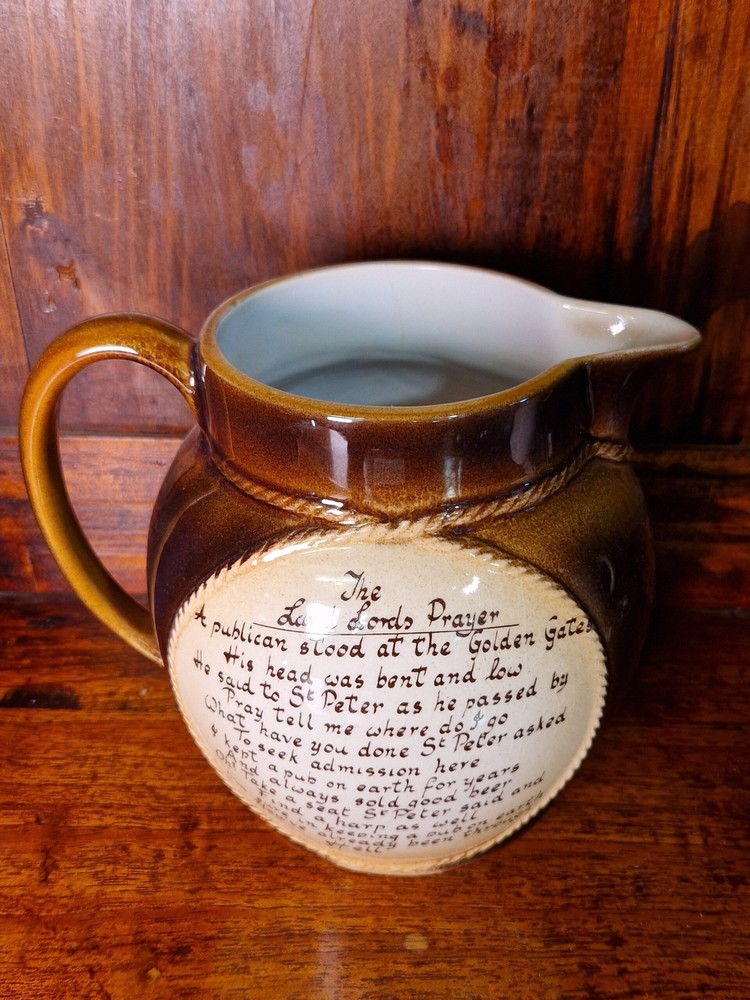 The
Land Lords Prayer
A publican stood at the Golden Gates
His head was bent and low
He said to St Peter as he passed by
Pray tell me where do I go
What have you done St Peter asked
To seek admission here
I kept a pub on earth for years
And always sold good beer
Oh take a seat St Peter said and
find a harp as well
in keeping a pub on earth
already been through
Hell